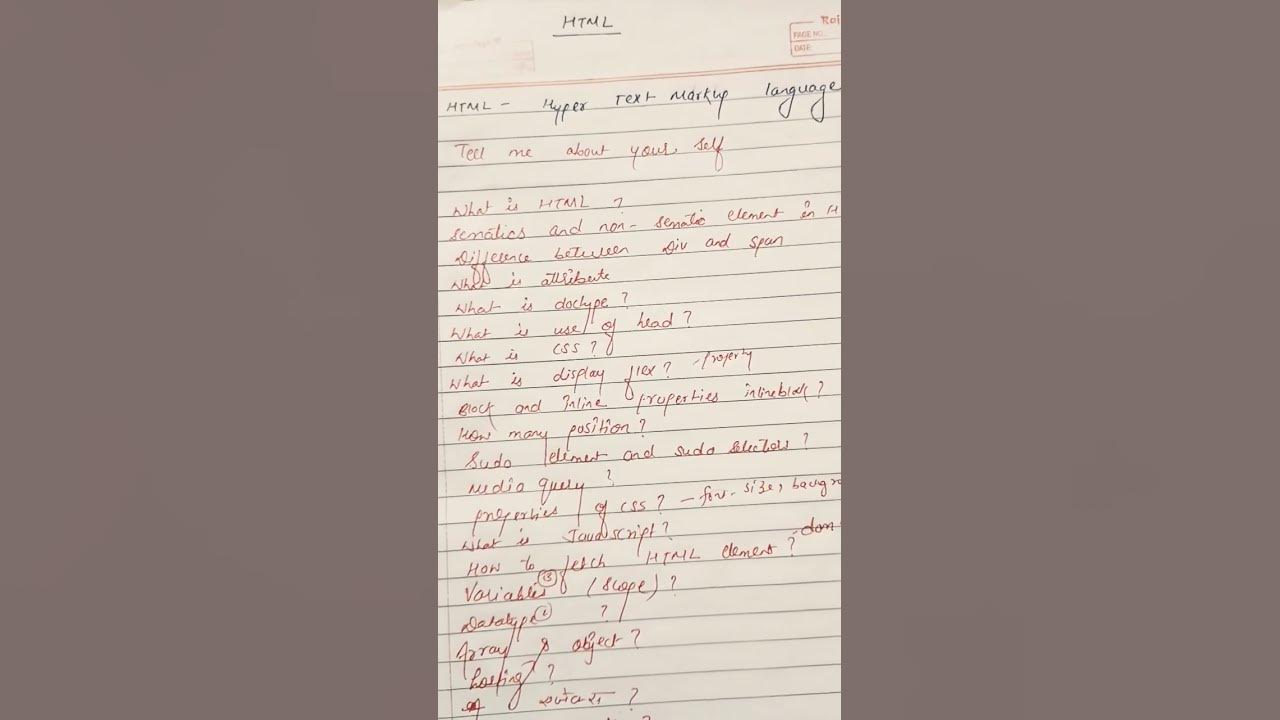 HTML
Roj
PAGE NO.
DATE:
HTML - Hyper Text Markup language
Tell me about your self
What is HTML ?
Sematics and non- Sematic element in H
Difference between Div and span
What is attribute
What is doctype ?
What is use of head ?
What is CSS ?
What is display flex ? - Property
Block and Inline properties inlineblock ?
How many position ?
Sudo element and sudo selectors ?
Media query ?
properties of CSS ? - for- size, backgro
What is Javascript ?
How to fetch HTML element ? - dom
Variables (3) (scope) ?
Datatype ?
Array & object ?
hosting ?